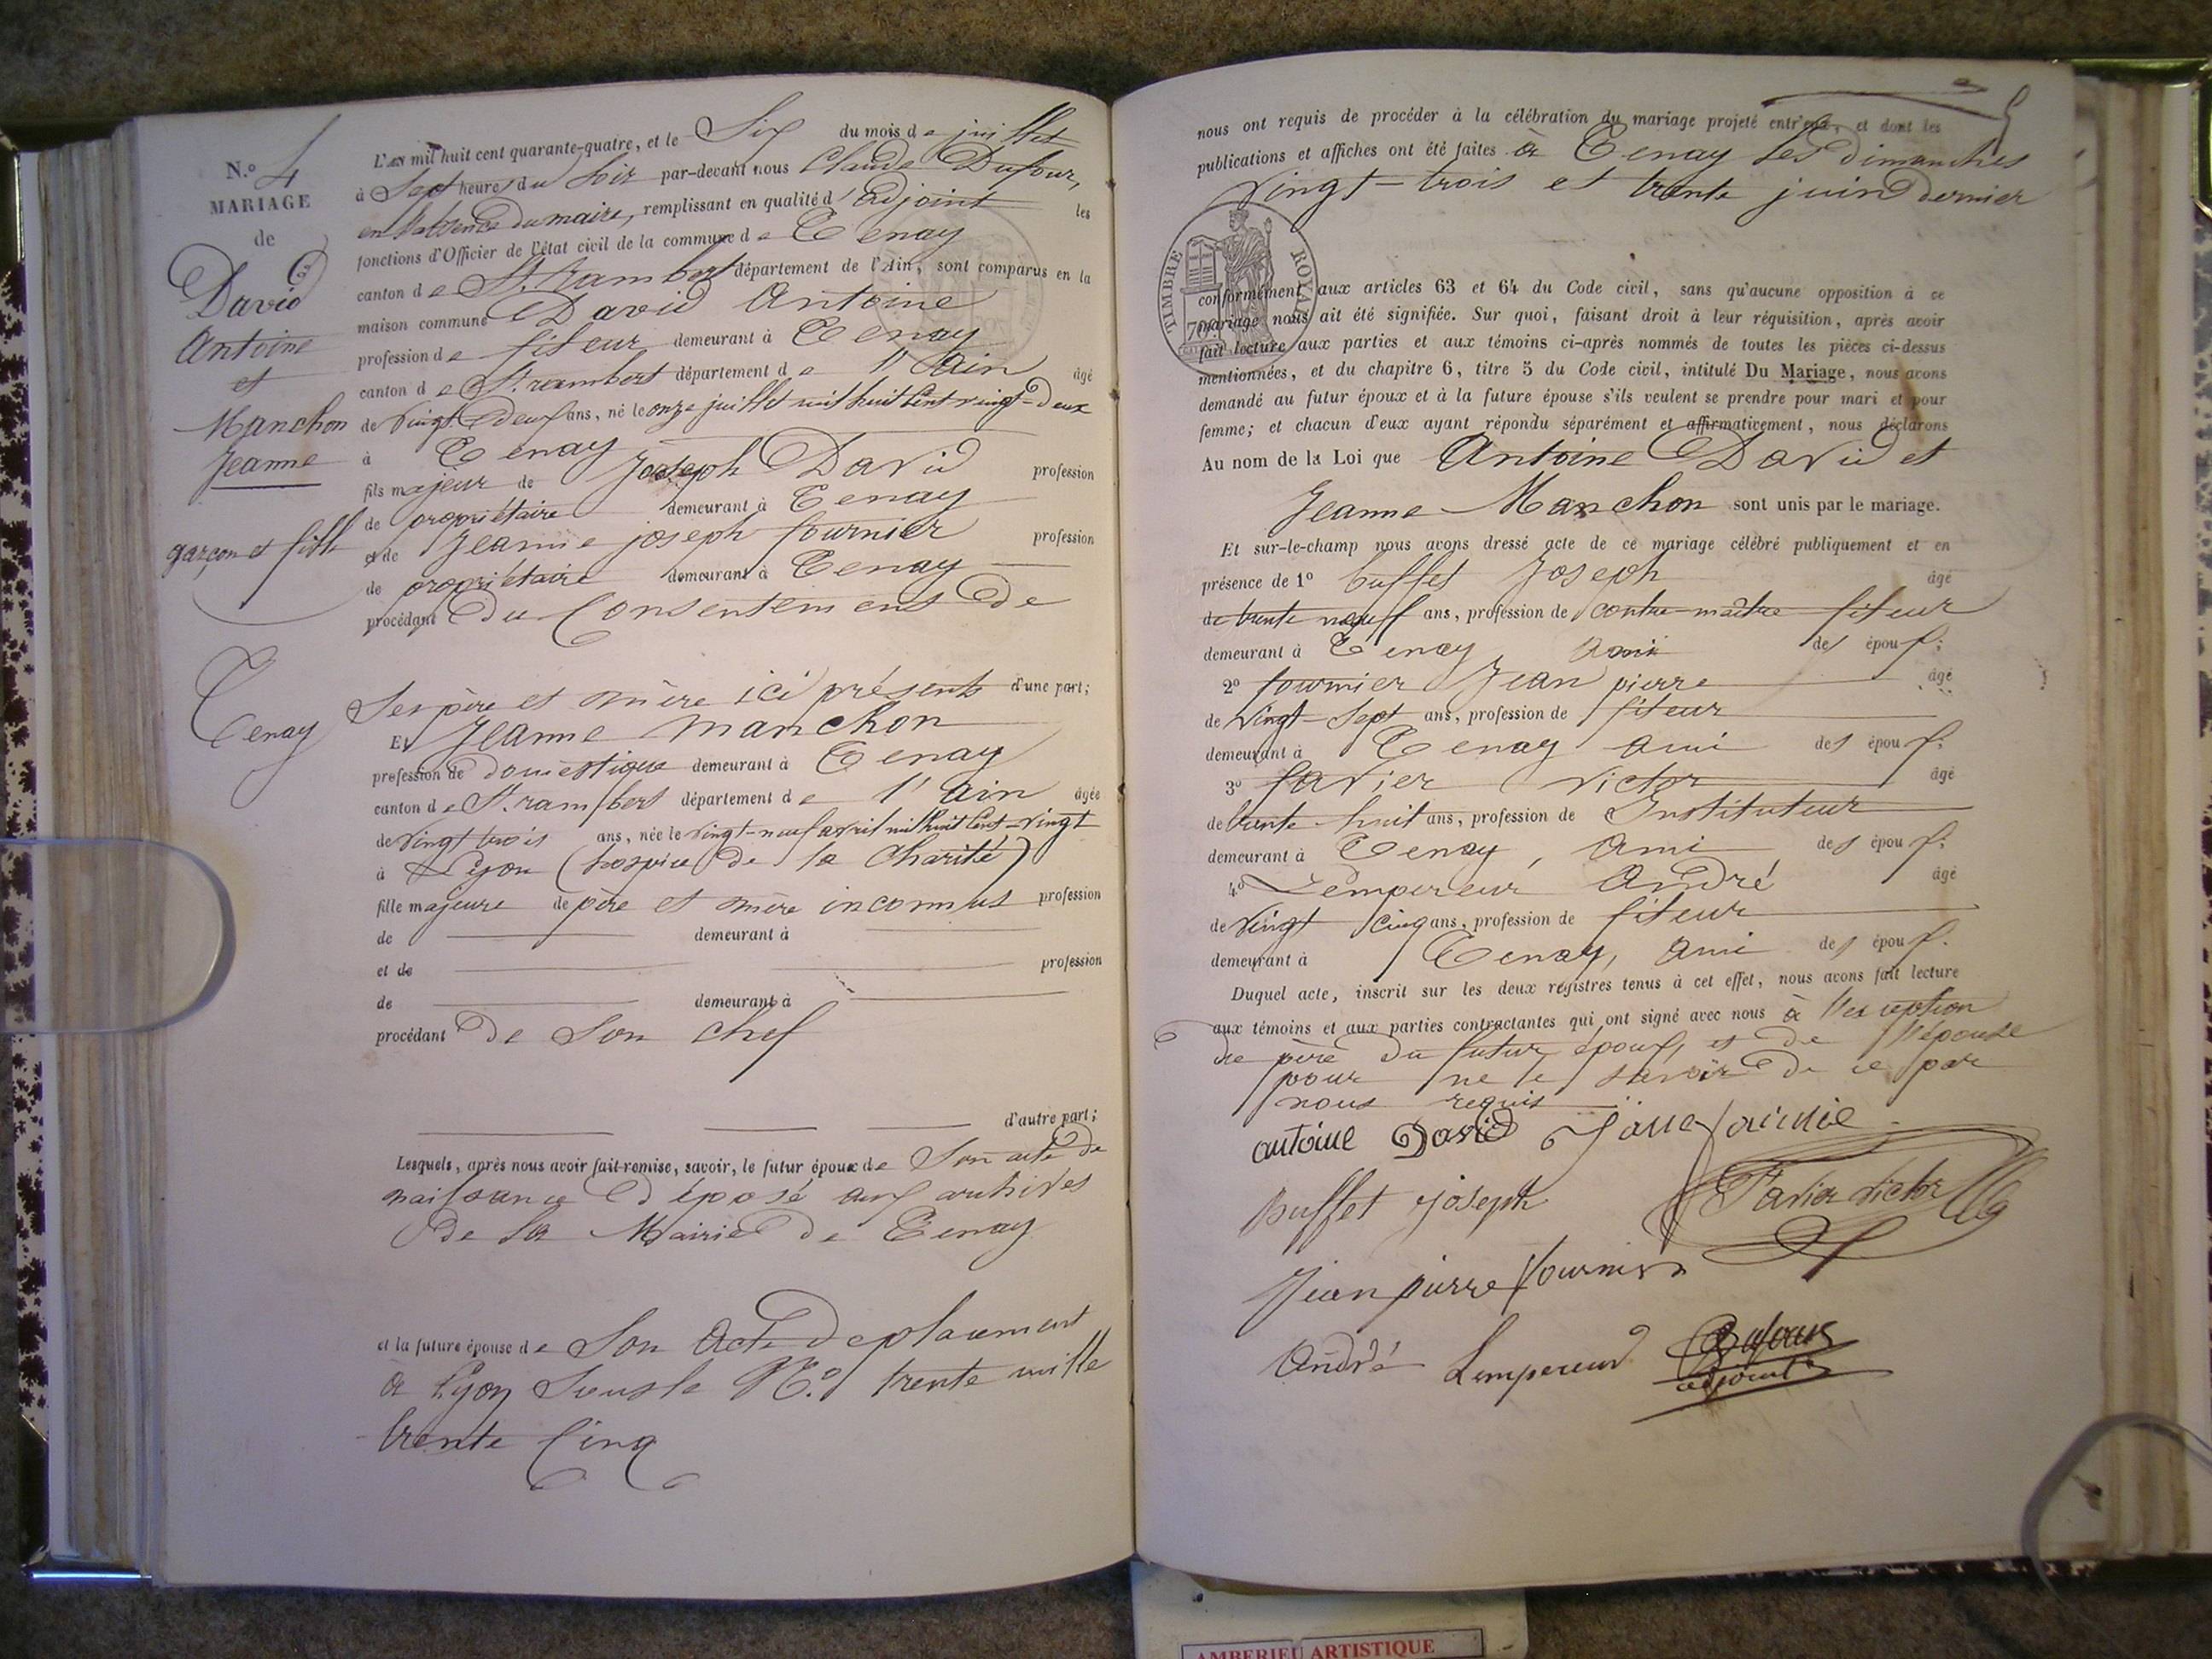 N.o 4
MARIAGE
de
David
Antoine
et
Manchon
Jeanne
garçon et fille
Tenay
L'an mil huit cent quarante-quatre, et le Six du mois de juillet
à Sept heures du Soir par-devant nous Claude Dufour,
en l'absence du maire, remplissant en qualité d'adjoint les
fonctions d'Officier de l'état civil de la commune de Tenay
canton de St. rambert département de l'Ain, sont comparus en la
maison commune David Antoine
profession de fileur demeurant à Tenay
canton de St. rambert département de l'Ain âgé
de vingt deux ans, né le onze juillet mil huit Cent vingt-deux
à Tenay
fils majeur de Joseph David profession
de propriétaire demeurant à Tenay
et de Jeanne joseph fournier profession
de propriétaire demeurant à Tenay
procédant Du Consentement De
Ses père et mère ici présents d'une part;
Et Jeanne manchon
profession de domestique demeurant à Tenay
canton de St. rambert département de l'Ain âgée
de vingt trois ans, née le vingt-neuf avril mil huit Cent-vingt
à Lyon (hospice de la Charité)
fille majeure de père et mère inconnus profession
de demeurant à
et de profession
de demeurant à
procédant de Son chef
d'autre part;
Lesquels, après nous avoir fait remise, savoir, le futur époux de Son acte de
naissance déposé aux archives
de la Mairie de Tenay
et la future épouse de Son Acte de placement
à Lyon Sous le N.o trente mille
trente Cinq
nous ont requis de procéder à la célébration du mariage projeté entr'eux, et dont les
publications et affiches ont été faites à Tenay les dimanches
vingt-trois et trente juin dernier
TIMBRE ROYAL
conformément aux articles 63 et 64 du Code civil, sans qu'aucune opposition à ce
mariage nous ait été signifiée. Sur quoi, faisant droit à leur réquisition, après avoir
fait lecture aux parties et aux témoins ci-après nommés de toutes les pièces ci-dessus
mentionnées, et du chapitre 6, titre 5 du Code civil, intitulé Du Mariage, nous avons
demandé au futur époux et à la future épouse s'ils veulent se prendre pour mari et pour
femme; et chacun d'eux ayant répondu séparément et affirmativement, nous déclarons
Au nom de la Loi que Antoine David et
Jeanne Manchon sont unis par le mariage.
Et sur-le-champ nous avons dressé acte de ce mariage célébré publiquement et en
présence de 1o buffet Joseph âgé
de trente neuf ans, profession de contre-maître fileur
demeurant à Tenay, ami des époux;
2o fournier Jean pierre âgé
de vingt-Sept ans, profession de fileur
demeurant à Tenay ami des époux;
3o favier victor âgé
de trente-huit ans, profession de Instituteur
demeurant à Tenay, ami des époux;
4o Lempereur André âgé
de vingt cinq ans, profession de fileur
demeurant à Tenay, ami des époux.
Duquel acte, inscrit sur les deux registres tenus à cet effet, nous avons fait lecture
aux témoins et aux parties contractantes qui ont signé avec nous à l'exception
du père du futur époux, et de l'épouse
pour ne le savoir de ce par
nous requis
antoine David
Buffet joseph
Favier victor
Jean pierre fournier
André Lempereur
Dufour
adjoint
AMBERIEU ARTISTIQUE